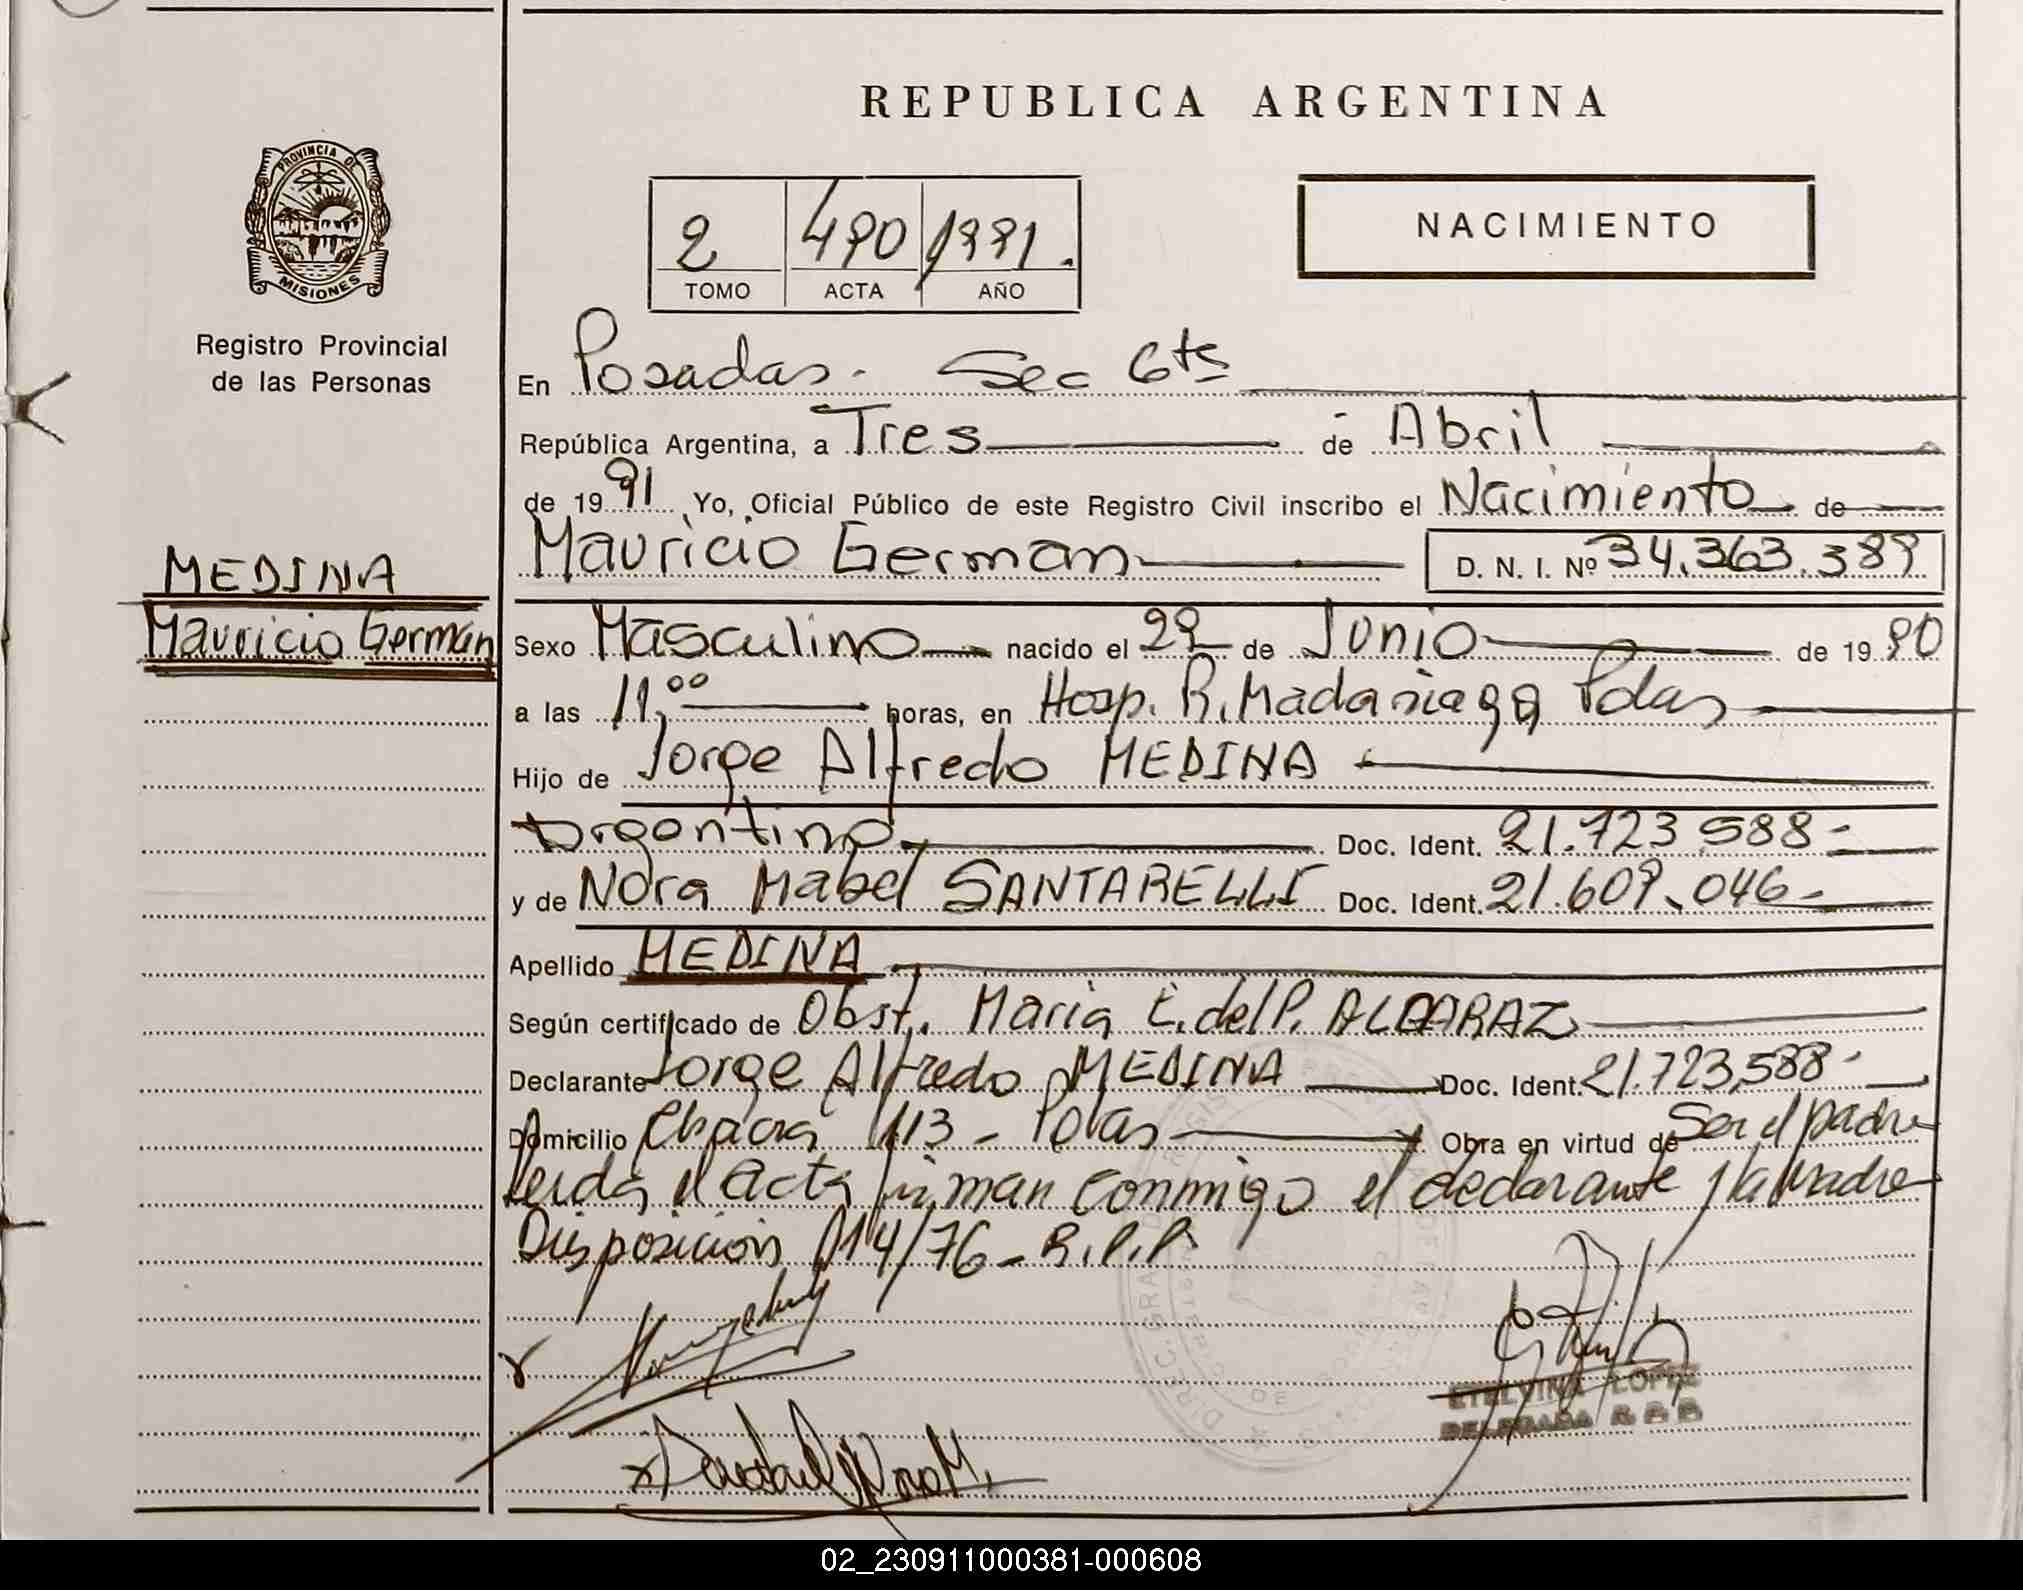 REPUBLICA ARGENTINA
PROVINCIA DE
MISIONES
Registro Provincial
de las Personas
2 490 1991.
TOMO ACTA AÑO
NACIMIENTO
En Posadas. Sec 6ta
República Argentina, a Tres de Abril
de 1991 Yo, Oficial Público de este Registro Civil inscribo el Nacimiento de
Mauricio German D. N. I. Nº 34.363.389
MEDINA
Mauricio German
Sexo Masculino nacido el 22 de Junio de 1990
a las 11,00 horas, en Hosp. R. Madariaga Pdas
Hijo de Jorge Alfredo MEDINA
Argentino Doc. Ident. 21.723.588-
y de Nora Mabel SANTARELLI Doc. Ident. 21.609.046-
Apellido MEDINA
Según certificado de Obst. Maria E. del P. ALCARAZ
Declarante Jorge Alfredo MEDINA Doc. Ident. 21.723.588-
Domicilio Chacra 113 - Pdas Obra en virtud de Ser el padre
Leida el acta firman conmigo el declarante y la madre
Disposición 014/76 - R.P.P.
ETELVINA LOPEZ
DELEGADA
02_230911000381-000608